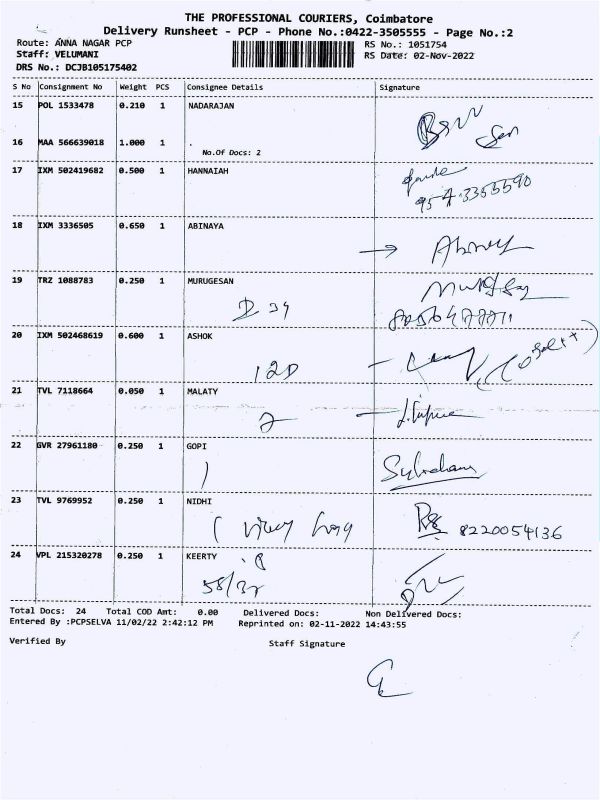 THE PROFESSIONAL COURIERS, Coimbatore
Delivery Runsheet - PCP - Phone No.:0422-3505555 - Page No.:2
Route: ANNA NAGAR PCP
Staff: VELUMANI
DRS No.: DCJB105175402
RS No.: 1051754
RS Date: 02-Nov-2022
S No Consignment No Weight PCS Consignee Details Signature
15 POL 1533478 0.210 1 NADARAJAN
16 MAA 566639018 1.000 1 .
No.Of Docs: 2
17 IXM 502419682 0.500 1 HANNAIAH
18 IXM 3336505 0.650 1 ABINAYA
19 TRZ 1088783 0.250 1 MURUGESAN
D 34
20 IXM 502468619 0.600 1 ASHOK
12D
21 TVL 7118664 0.050 1 MALATY
2
22 GVR 27961180 0.250 1 GOPI
23 TVL 9769952 0.250 1 NIDHI
8220054136
24 VPL 215320278 0.250 1 KEERTY
Total Docs: 24 Total COD Amt: 0.00 Delivered Docs: Non Delivered Docs:
Entered By :PCPSELVA 11/02/22 2:42:12 PM Reprinted on: 02-11-2022 14:43:55
Verified By Staff Signature